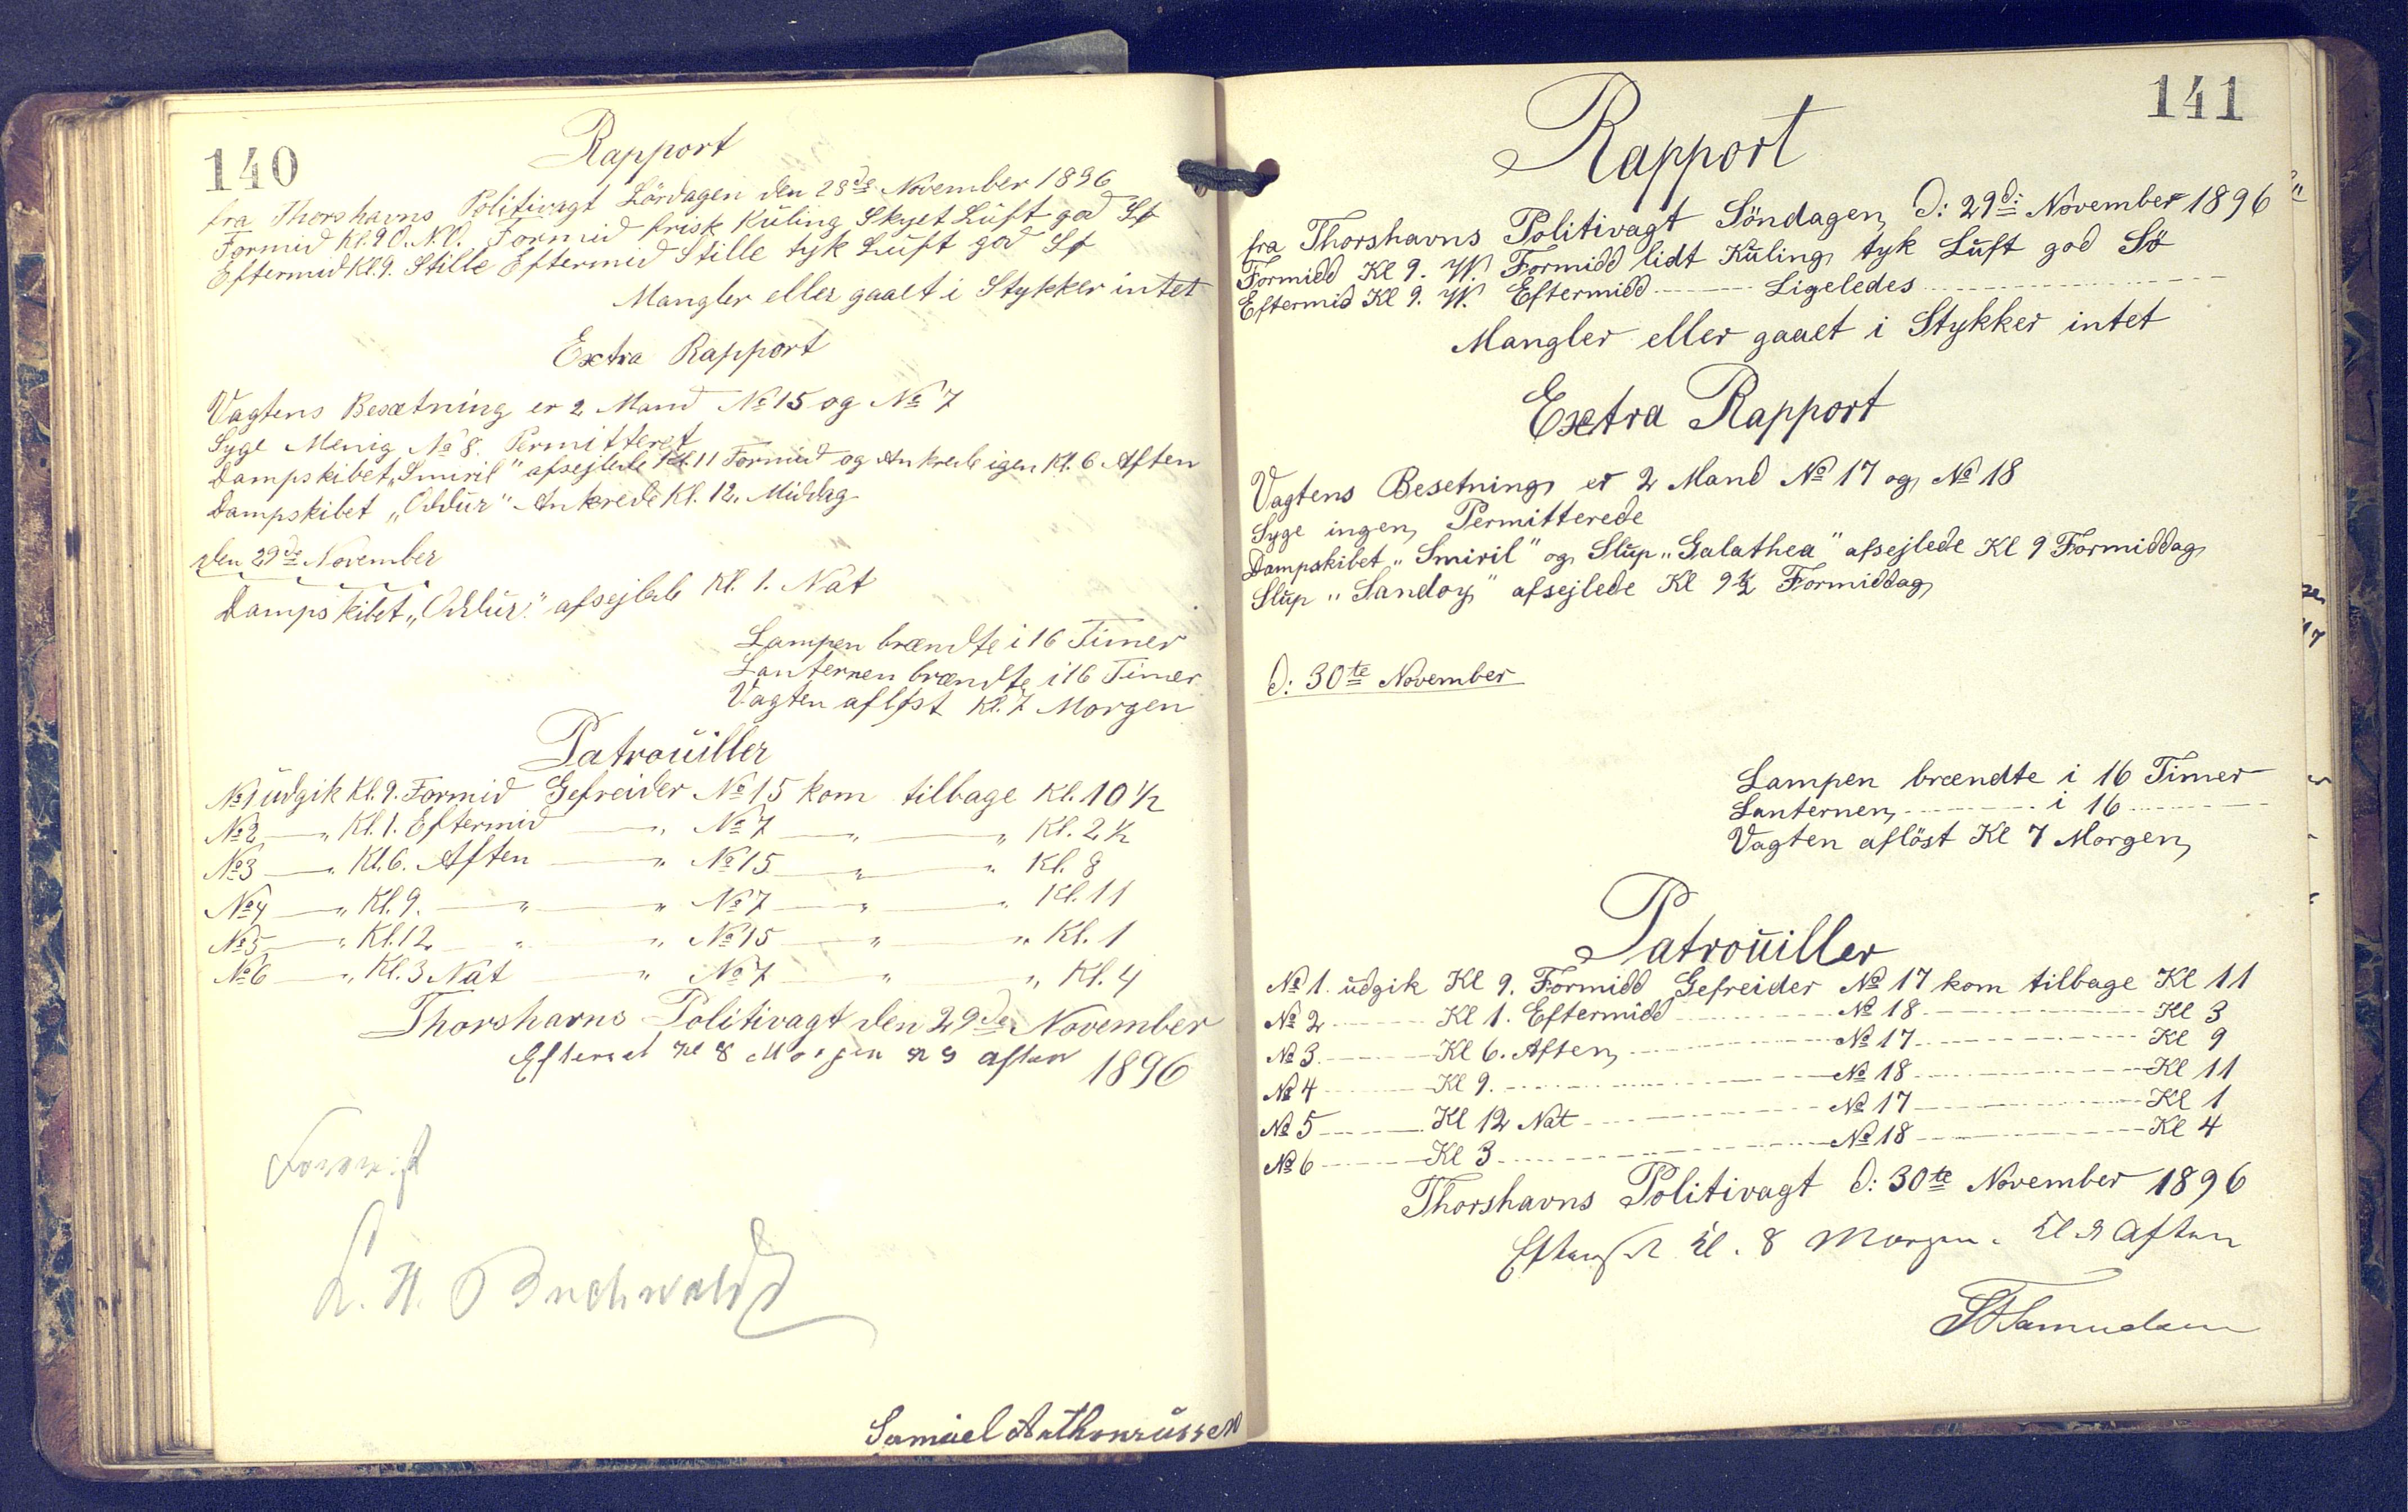 140
Rapport
fra Thorshavns Politivagt Lördagen den 28de November 1896
Formid Kl. 9 O.N.O. Formid frisk Kuling Skyet Luft god Sø
Eftermid Kl. 9. Stille Eftermid Stille tyk Luft god Sø
Mangler eller gaaet i Stykker intet
Extra Rapport
Vagtens Besætning er 2 Mand No 15 og No 7
Syge Menig No 8. Permitteret
Dampskibet „Smiril" afsejlede Kl. 11 Formid og Ankrede igen Kl. 6 Aften
Dampskibet „Oddur" Ankrede Kl. 12. Middag
den 29de November
Dampskibet „Oddur" afsejlede Kl. 1. Nat
Lampen brændte i 16 Timer
Lanternen brændte i 16 Timer
Vagten afløst Kl. 7 Morgen
Patrouiller
No 1 udgik Kl. 9. Formid Gefreider No 15 kom tilbage Kl. 10 ½
No 2 — „ Kl. 1. Eftermid — „ No 7 — „ — „ Kl. 2 ½
No 3 — „ Kl. 6. Aften — „ No 15 — „ — „ Kl. 8
No 4 — „ Kl. 9. — „ — „ No 7 — „ — „ Kl. 11
No 5 — „ Kl. 12 — „ — „ No 15 — „ — „ Kl. 1
No 6 — „ Kl. 3 Nat — „ No 7 — „ — „ Kl. 4
Thorshavns Politivagt den 29de November
Efterset Kl 8 Morgen Kl 9 aften 1896
L. H. Buchwaldt
Samuel Anthoniussen
141
Rapport
fra Thorshavns Politivagt Söndagen D: 29d: November 1896
Formidd Kl 9. W. Formidd lidt Kuling tyk Luft god Sö
Eftermid Kl 9. W. Eftermidd ---- Ligeledes ----
Mangler eller gaaet i Stykker intet
Extra Rapport
Vagtens Besetning er 2 Mand No 17 og No 18
Syge ingen Permitterede
Dampskibet „Smiril" og Slup „Galathea" afsejlede Kl 9 Formiddag
Slup „Sandoy" afsejlede Kl 9½ Formiddag
D: 30te November
Lampen brændte i 16 Timer
Lanternen ---- i 16 ----
Vagten aflöst Kl 7 Morgen
Patrouiller
No 1. udgik Kl 9. Formidd Gefreider No 17 kom tilbage Kl 11
No 2 ---- Kl 1. Eftermidd ---- No 18 ---- Kl 3
No 3 ---- Kl 6. Aften ---- No 17 ---- Kl 9
No 4 ---- Kl 9. ---- No 18 ---- Kl 11
No 5 ---- Kl 12 Nat ---- No 17 ---- Kl 1
No 6 ---- Kl 3 ---- No 18 ---- Kl 4
Thorshavns Politivagt D: 30te November 1896
Efterset Kl. 8 Morgen. Kl 9 Aften